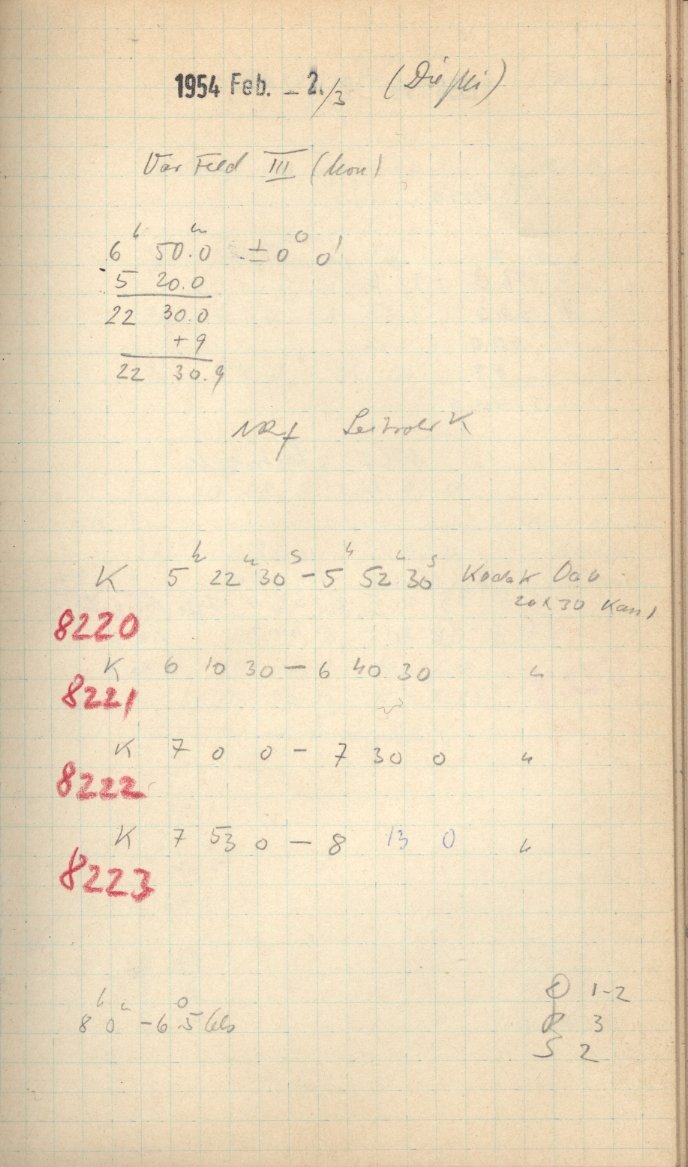 1954 Feb. – 2./3
Var Feld III (Mon)
6ʰ 50.0ᵐ ±0° 0'
5 20.0
22 30.0
+9
22 30.9
K 5ʰ 22ᵐ 30ˢ – 5ʰ 52ᵐ 30ˢ Kodak OaO
20x30
8220
K 6 10 30 – 6 40 30 "
8221
K 7 0 0 – 7 30 0 "
8222
K 7 53 0 – 8 13 0 "
8223
8ʰ 0ᵐ –6°.5 1-2
3
S 2